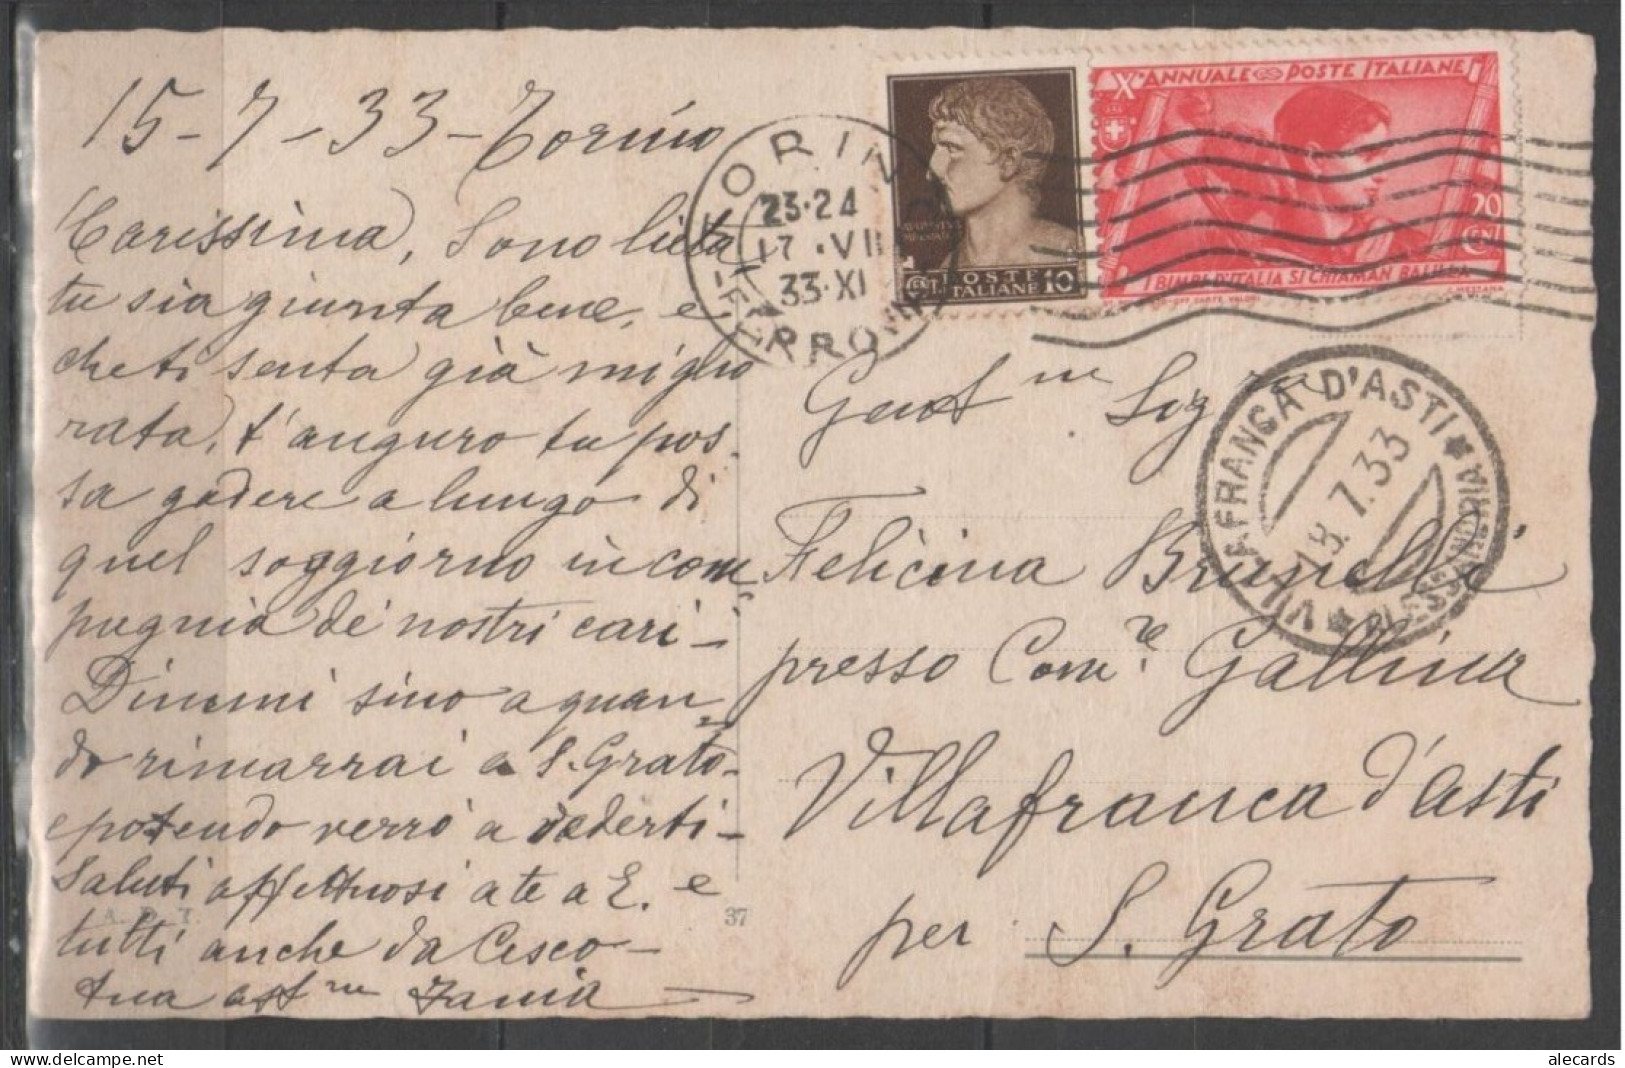 15-7-33-Torino
Carissima, Sono lieta
tu sia giunta bene, e
che ti senta già miglio
rata, t'auguro tu pos-
sa godere a lungo di
quel soggiorno in com
pagnia dei nostri cari-
Dimmi sino a quan-
do rimarrai a S. Grato-
e potendo verrò a vederti-
Saluti affettuosi a te a E. e
tutti anche da Cesco-
tua aff.ma
37
TORINO
23·24
17·VII
33·XI
FERROVIA
POSTE
ITALIANE 10
CENT.
X° ANNUALE POSTE ITALIANE
20
CENT
I BIMBI D'ITALIA SI CHIAMAN BALILLA
VILLAFRANCA D'ASTI
18.7.33
ALESSANDRIA
Gent.ma Sig.
Felicina Brunelli
presso Com.re Gallina
Villafranca d'Asti
per S. Grato
alecards